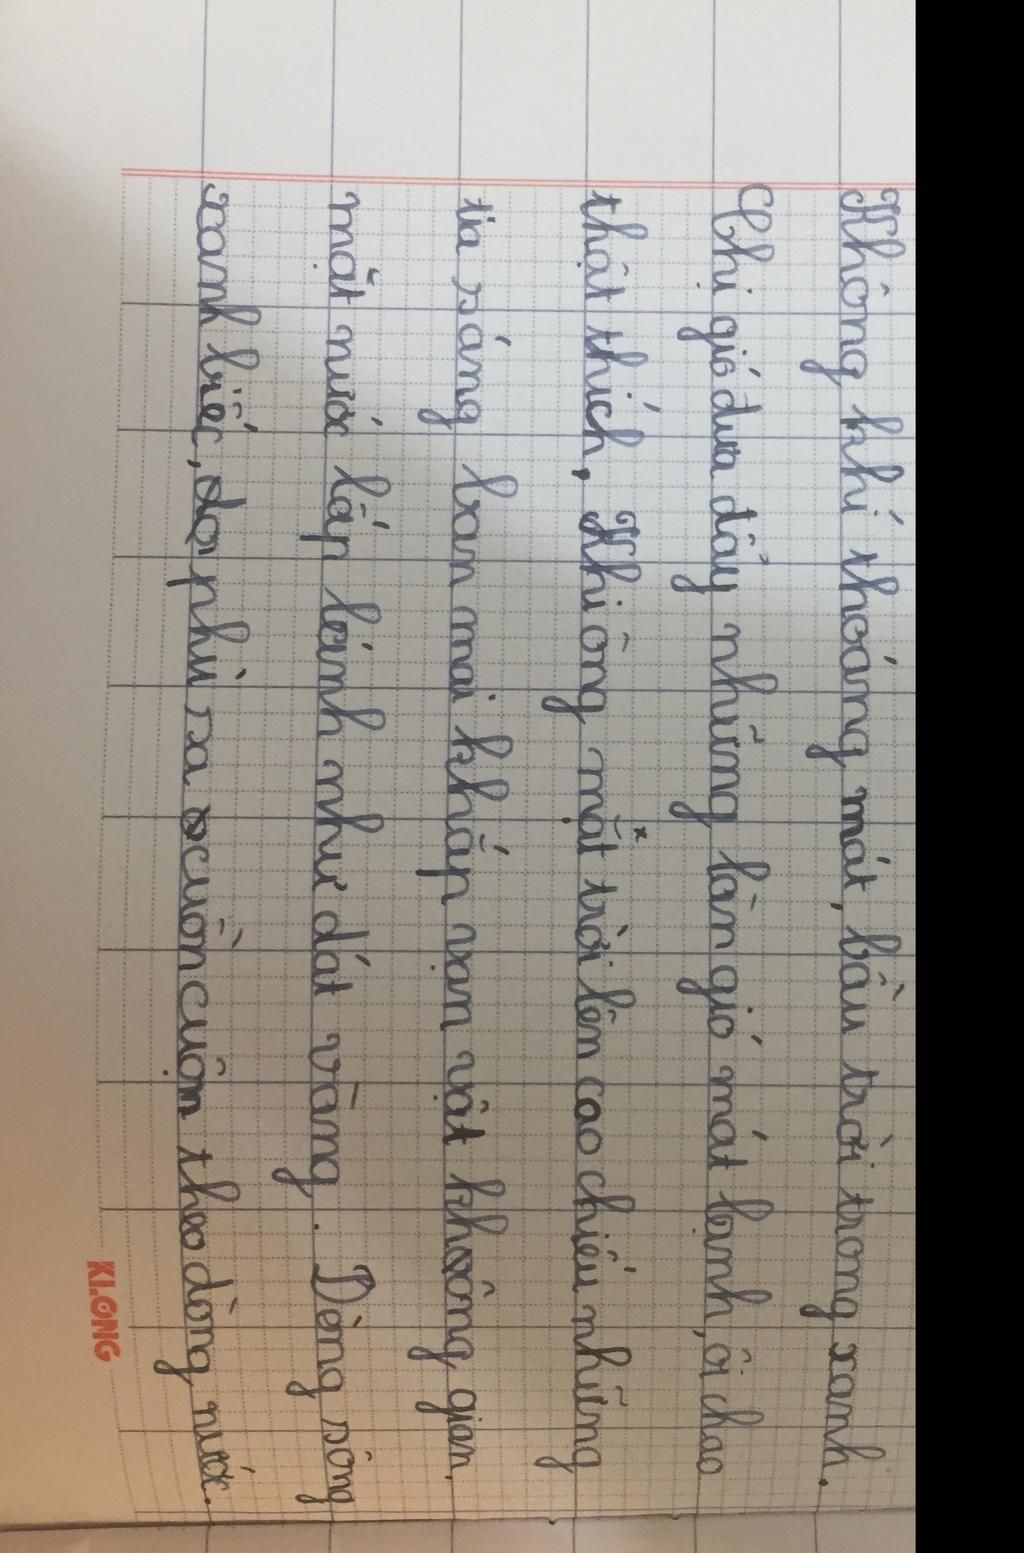 Không khí thoáng mát, bầu trời trong xanh.
Chị gió đưa đẩy những làn gió mát lành, ôi chao
thật thích. Khi ông mặt trời lên cao chiếu những
tia sáng ban mai khắp vạn vật không gian,
mặt nước lấp lánh như dát vàng. Dòng sông
xanh biếc, do phù sa cuồn cuộn theo dòng nước.
KLONG